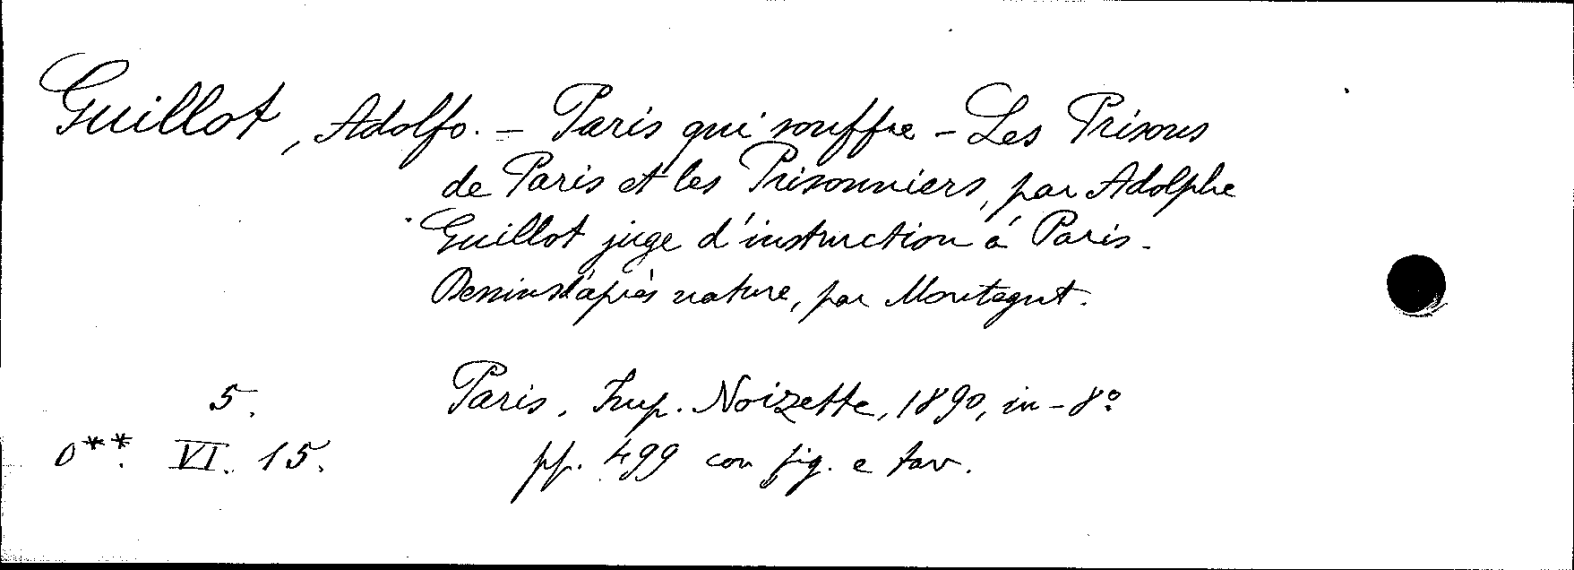 Guillot, Adolfo. – Paris qui souffre – Les Prisons
de Paris et les Prisonniers, par Adolphe
Guillot juge d'instruction à Paris.
Dessins d'après nature, par Montegut.
5. Paris, Imp. Noizette, 1890, in-8º
O**. VI. 15. pp. 499 con fig. e tav.